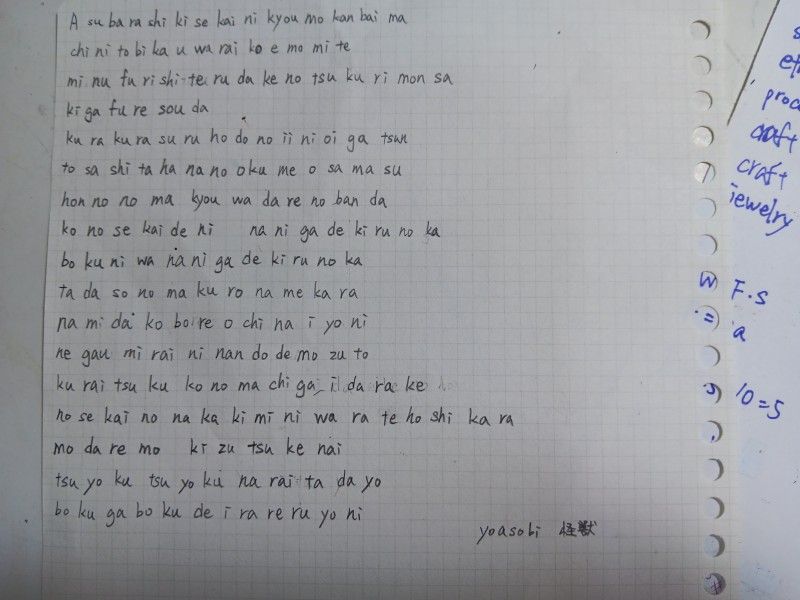 A su ba ra shi ki se kai ni kyou mo kan bai ma
chi ni to bi ka u wa rai ko e mo mi te
mi nu fu ri shi te ru da ke no tsu ku ri mon sa
ki ga fu re sou da
ku ra ku ra su ru ho do no ii ni oi ga tsun
to sa shi ta ha na no oku me o sa ma su
hon no no ma kyou wa da re no ban da
ko no se kai de ni na ni ga de ki ru no ka
bo ku ni wa na ni ga de ki ru no ka
ta da so no ma ku ro na me ka ra
na mi da ko bo re o chi na i yo ni
ne gau mi rai ni nan do de mo zu to
ku rai tsu ku ko no ma chi ga i da ra ke
no se kai no na ka ki mi ni wa ra te ho shi ka ra
mo da re mo ki zu tsu ke nai
tsu yo ku tsu yo ku na rai ta da yo
bo ku ga bo ku de i ra re ru yo ni
yoasobi 怪獣
craft
craft
jewelry
F.S
a
10=5